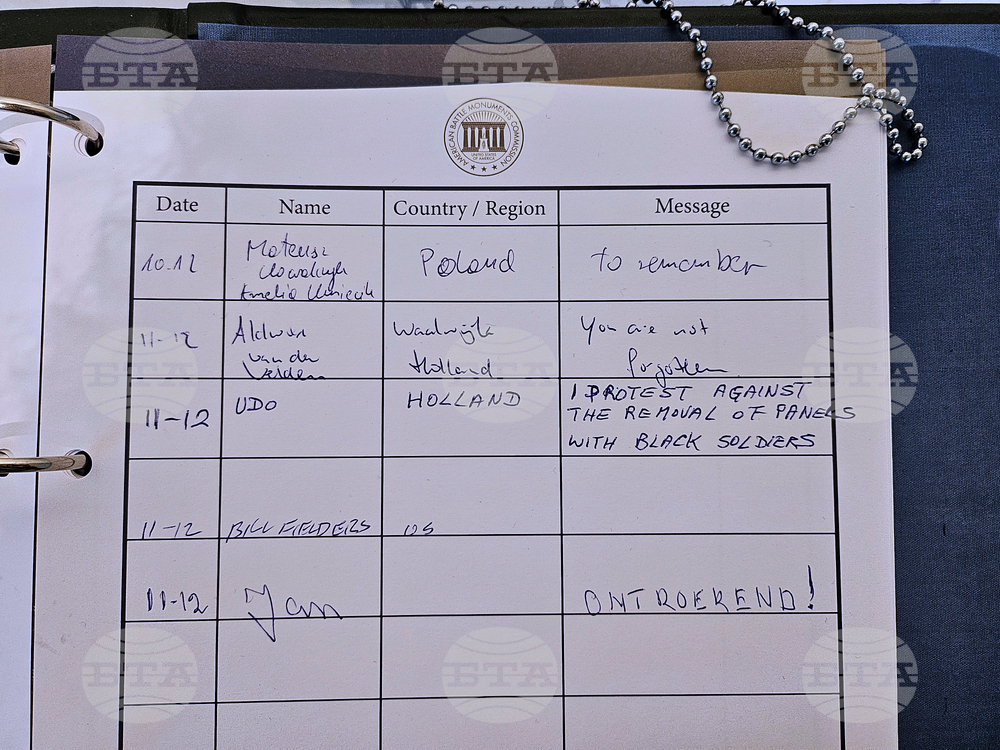 БТА БТА БТА
AMERICAN BATTLE MONUMENTS COMMISSION
UNITED STATES
OF AMERICA
Date Name Country / Region Message
10.12 Mateusz Poland to remember
Amelia
11-12 Waalwijk You are not
van der Holland forgotten
Velden
11-12 UDO HOLLAND I PROTEST AGAINST
THE REMOVAL OF PANELS
WITH BLACK SOLDIERS
11-12 BILL FIELDERS US
11-12 Jan ONTROEREND!
БТА БТА БТА
БТА БТА БТА